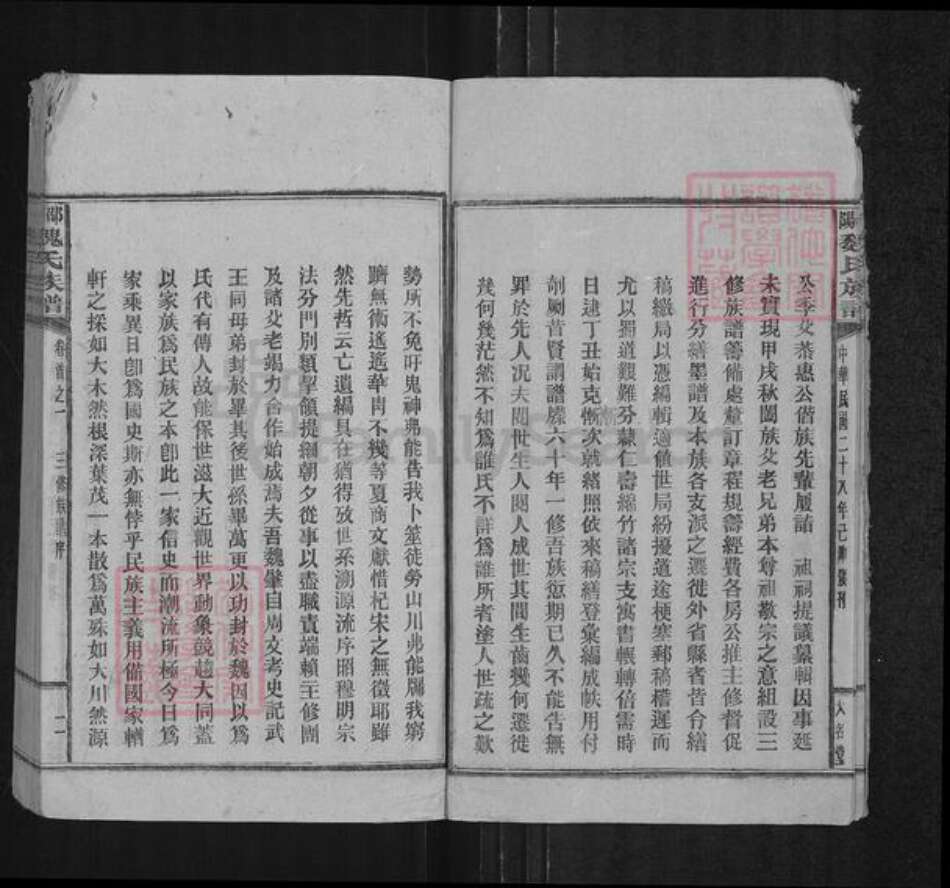 陽魏氏族譜
中華民國二十八年己卯發刊
公季父恭惠公偕族先輩屢詣 祖祠提議纂輯因事延
未實現甲戌秋闔族父老兄弟本尊祖敬宗之意組設三
修族譜籌備處釐訂章程規籌經費各房公推主修督促
進行分繕墨譜及本族各支派之遷徙外省縣者皆令繕
稿繳局以憑編輯適值世局紛擾道途梗塞郵稿稽遲而
尤以蜀道艱難分隸仁壽綿竹諸宗支寓書輾轉倍需時
日逮丁丑始克慚次就緒照依來稿繕登彙編成帙用付
剞劂昔賢謂譜牒六十年一修吾族愆期已久不能告無
罪於先人况夫閱世生人閱人成世其間生齒幾何遷徙
幾何幾茫然不知爲誰氏不詳爲誰所者塗人世疏之歎
勢所不免吁鬼神弗能告我卜筮徒勞山川弗能牖我窮
躋無術遙遙華胄不幾等夏商文獻惜杞宋之無徵耶雖
然先哲云亡遺編具在猶得攷世系溯源流序昭穆明宗
法分門別類挈領提綱朝夕從事以盡職責端賴三修團
及諸父老竭力合作始成焉夫吾魏肇自周文考史記武
王同母弟封於畢其後世係畢萬更以功封於魏因以爲
氏代有傳人故能保世滋大近觀世界動象競趨大同蓋
以家族爲民族之本卽此一家信史而潮流所極今日爲
家乘異日卽爲國史斯亦無悖乎民族主義用備國家輶
軒之採如大木然根深葉茂一本散爲萬殊如大川然源
魏氏族譜
卷首之一 三修族譜序 二